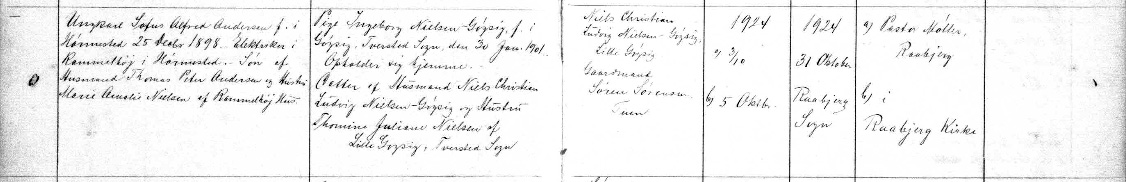 Ungkarl Sofus Alfred Andersen f. i
Hörmested 25 Decbr 1898. Elektriker i
Rammelhöj i Hörmested. Sön af
Husmand Thomas Peter Andersen og Hustru
Marie Amalie Nielsen af Rammelhöj Hus.
Pige Ingeborg Nielsen-Gøgsig, f. i
Gøgsig, Tversted Sogn, den 30 Jan. 1901.
Opholder sig hjemme.
Datter af Husmand Niels Christian
Ludvig Nielsen-Gøgsig og Hustru
Thomine Juliane Nielsen af
Lille Gøgsig, Tversted Sogn
Niels Christian
Ludvig Nielsen-Gøgsig,
Lille Gøgsig
Gaardmand
Søren Sørensen
Tuen
1924
a) 3/10
b) 5 Oktbr.
1924
31 Oktober
Raabjerg
Sogn
a) Pastor Møller,
Raabjerg
b) i
Raabjerg Kirke